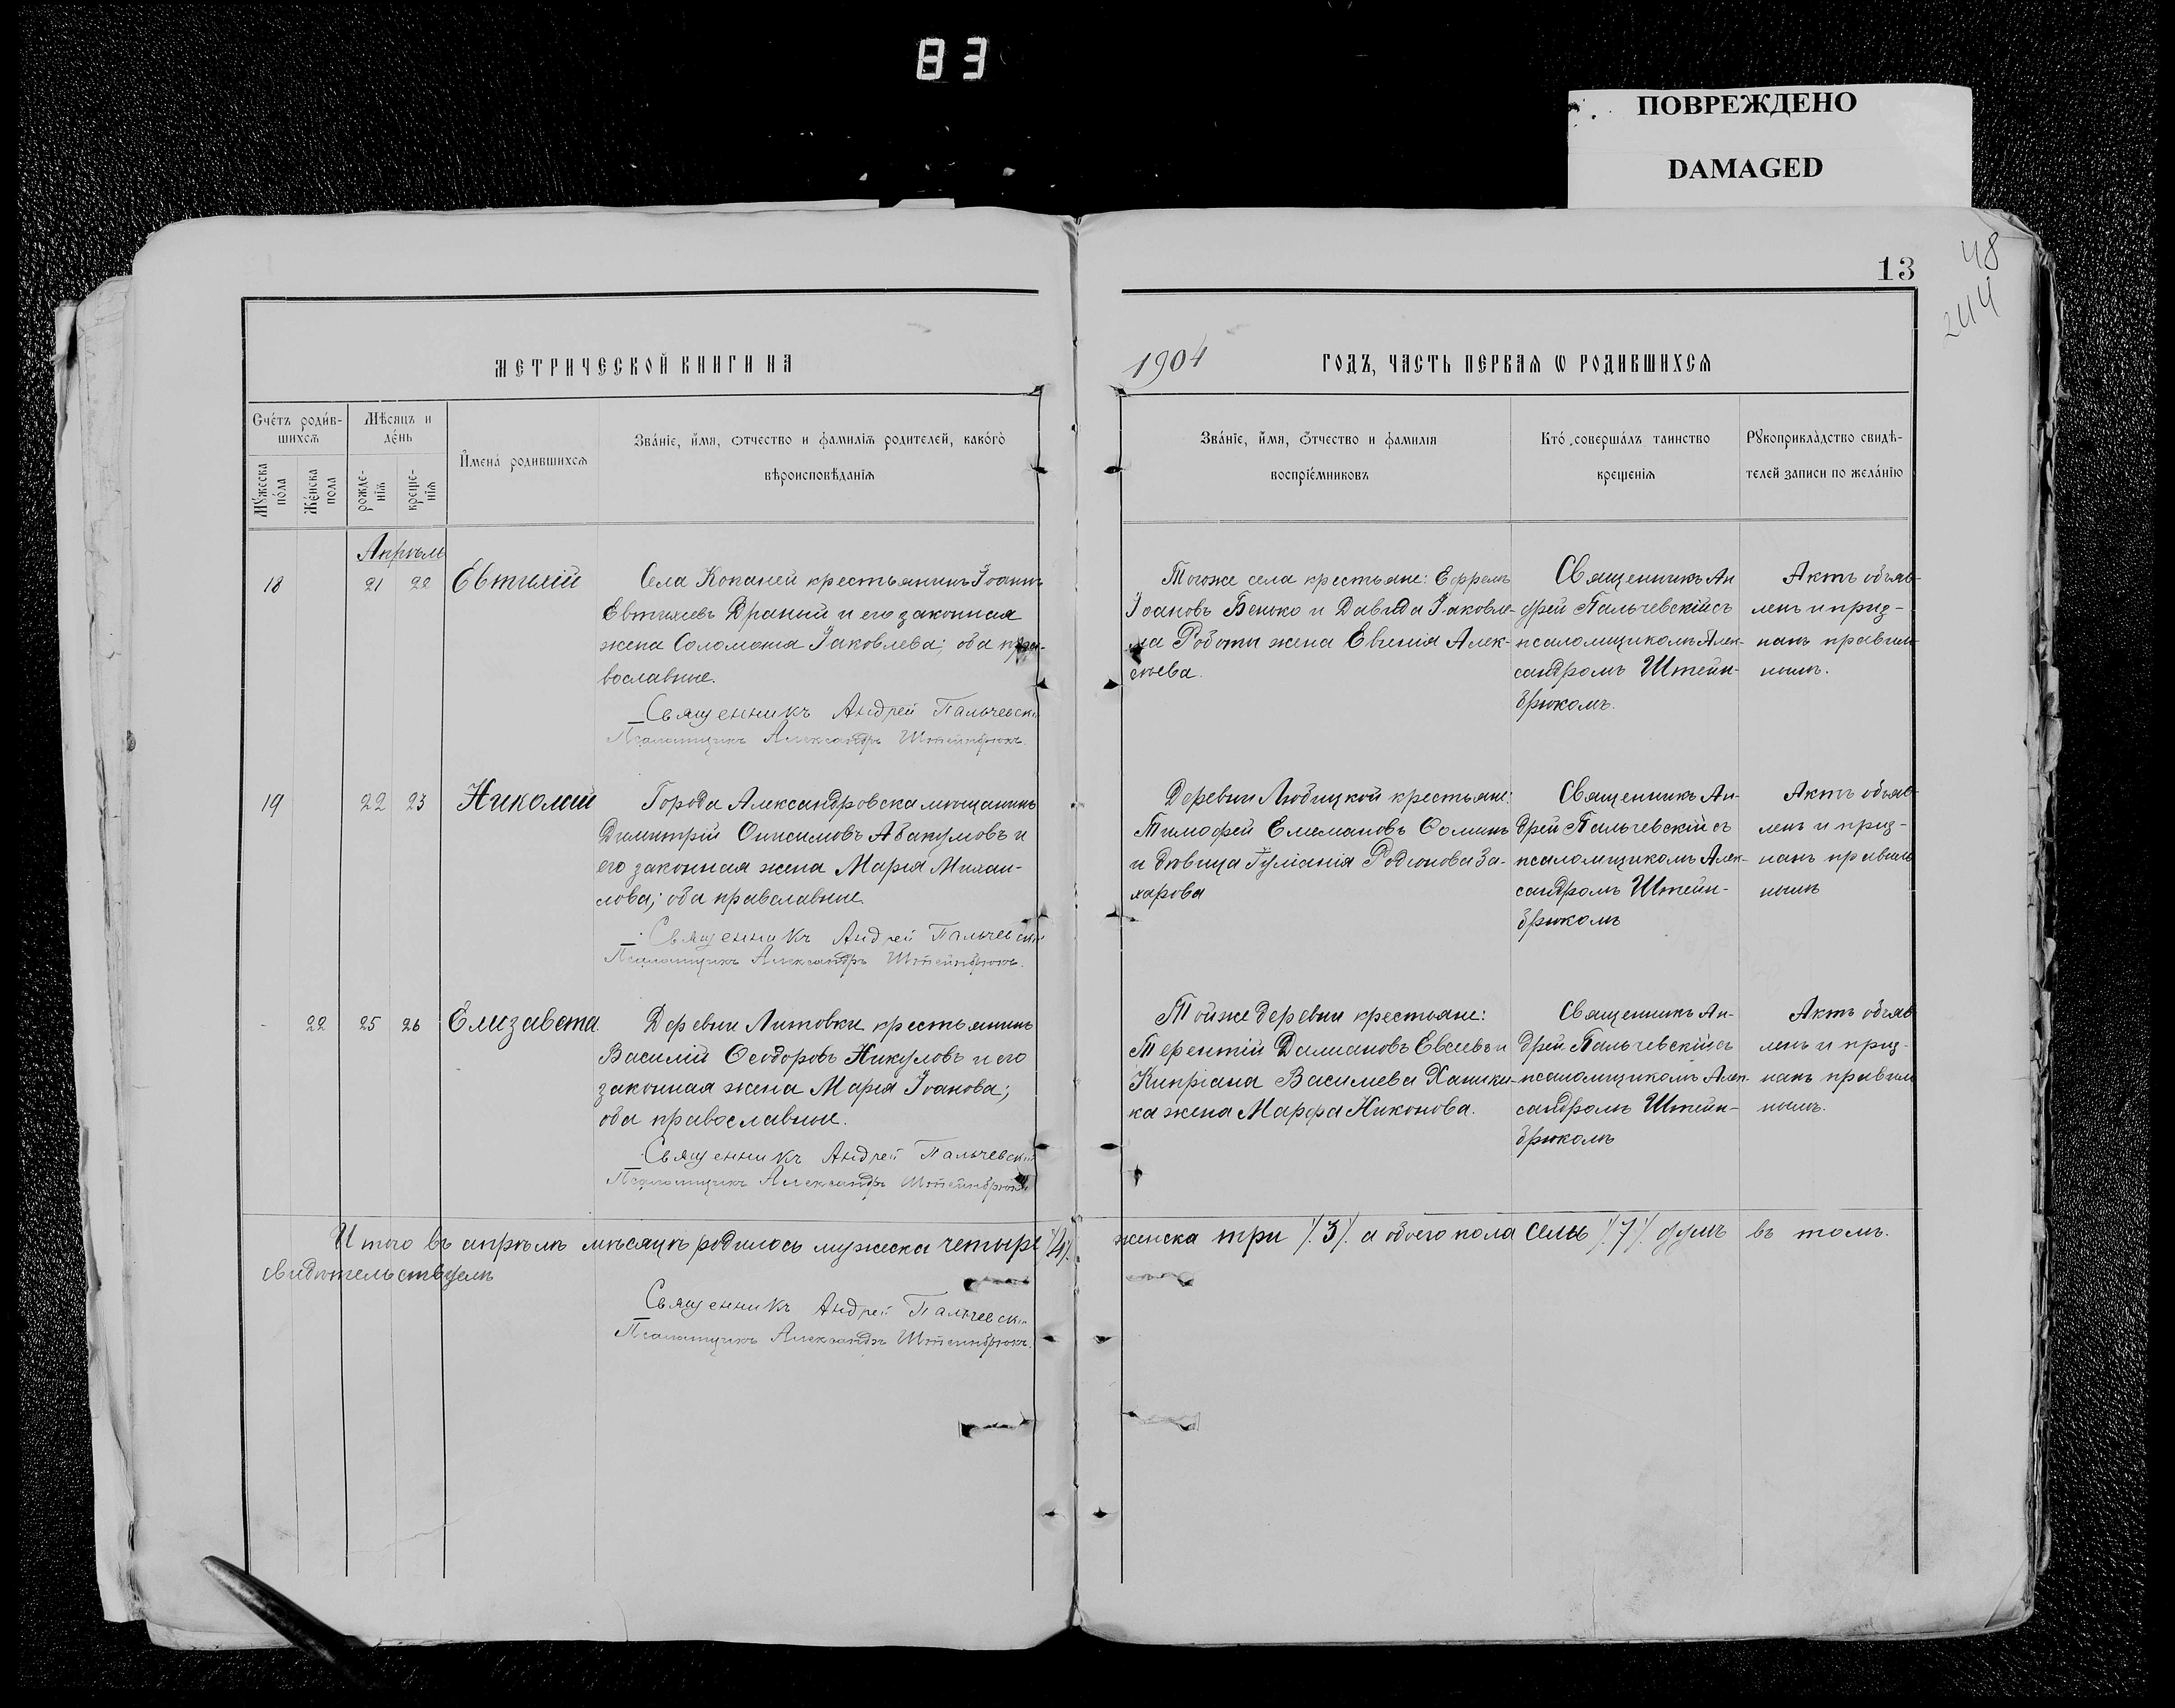 83
ПОВРЕЖДЕНО
DAMAGED
13
48
244
МЕТРИЧЕСКОЙ КНИГИ НА
1904 ГОДЪ, ЧАСТЬ ПЕРВАѦ Ѡ РОДИВШИХСѦ
Счéтъ роди́в-
шихсѧ
Мѣ́сяцъ и
дéнь
Мꙋ́жеска
по́ла
Же́нска
пола
рожде-
нїѧ
креще-
нїѧ
И҆мена́ родившихсѧ
Зва́нїе, и҆́мя, ѻтчество и фамилїѧ родителей, како́гѡ
вѣроисповѣданїѧ
Зва́нїе, и҆́мя, ѻтчество и фамилїя
воспрїе́мниковъ
Кто́ соверша́лъ таинство
крещенїѧ
Рꙋкоприкла̀дство свидѣ-
телей записи по жела́нїю
Апрѣль
18
21 22
Евтихій
Села Копаней крестьянинъ Іоаннъ
Евтихіевъ Драный и его законная
жена Соломонія Іаковлева; оба пра-
вославные.
Священникъ Андрей Пальчевскій
Псаломщикъ Александръ Штейнбрюкъ.
Тогоже села крестьяне: Ефремъ
Іоановъ Бенько и Давида Іаковле-
ва Роботы жена Евгенія Алек-
сѣева.
Священникъ Ан
дрей Пальчевскій съ
псаломщикомъ Алек-
сандромъ Штейн-
брюкомъ.
Актъ объяв-
ленъ и приз-
нанъ правиль-
нымъ.
19
22 23
Николай
Города Александровска мѣщанинъ
Димитрій Онисимовъ Абакумовъ и
его законная жена Марія Михаи-
лова; оба православные.
Священникъ Андрей Пальчевскій
Псаломщикъ Александръ Штейнбрюкъ.
Деревни Любицкой крестьяне:
Тимофей Емемановъ Ѳоминъ
и дѣвица Іуліанія Родіонова За-
харова
Священникъ Ан-
дрей Пальчевскій съ
псаломщикомъ Алек-
сандромъ Штейн-
брюкомъ
Актъ объяв-
ленъ и приз-
нанъ правиль
нымъ
- 22
25 26
Елизавета.
Деревни Литовки крестьянинъ
Василій Ѳеодоровъ Никуловъ и его
законная жена Марія Іоанова;
оба православные.
Священникъ Андрей Пальчевскій
Псаломщикъ Александръ Штейнбрюкъ
Тойже деревни крестьяне:
Терентій Даміановъ Евсѣевъ и
Кипріана Василіева
ка жена Марфа Никонова.
Священникъ Ан-
дрей Пальчевскій съ
псаломщикомъ Алек-
сандромъ Штейн-
брюкомъ
Актъ объяв
ленъ и приз-
нанъ правиль
нымъ.
Итого въ апрѣлѣ мѣсяцѣ родилось мужеска четыре /4/. женска три /.3/. а обоего пола семь /.7/. душъ въ томъ.
свидѣтельствуемъ
Священникъ Андрей Пальчевскій
Псаломщикъ Александръ Штейнбрюкъ.